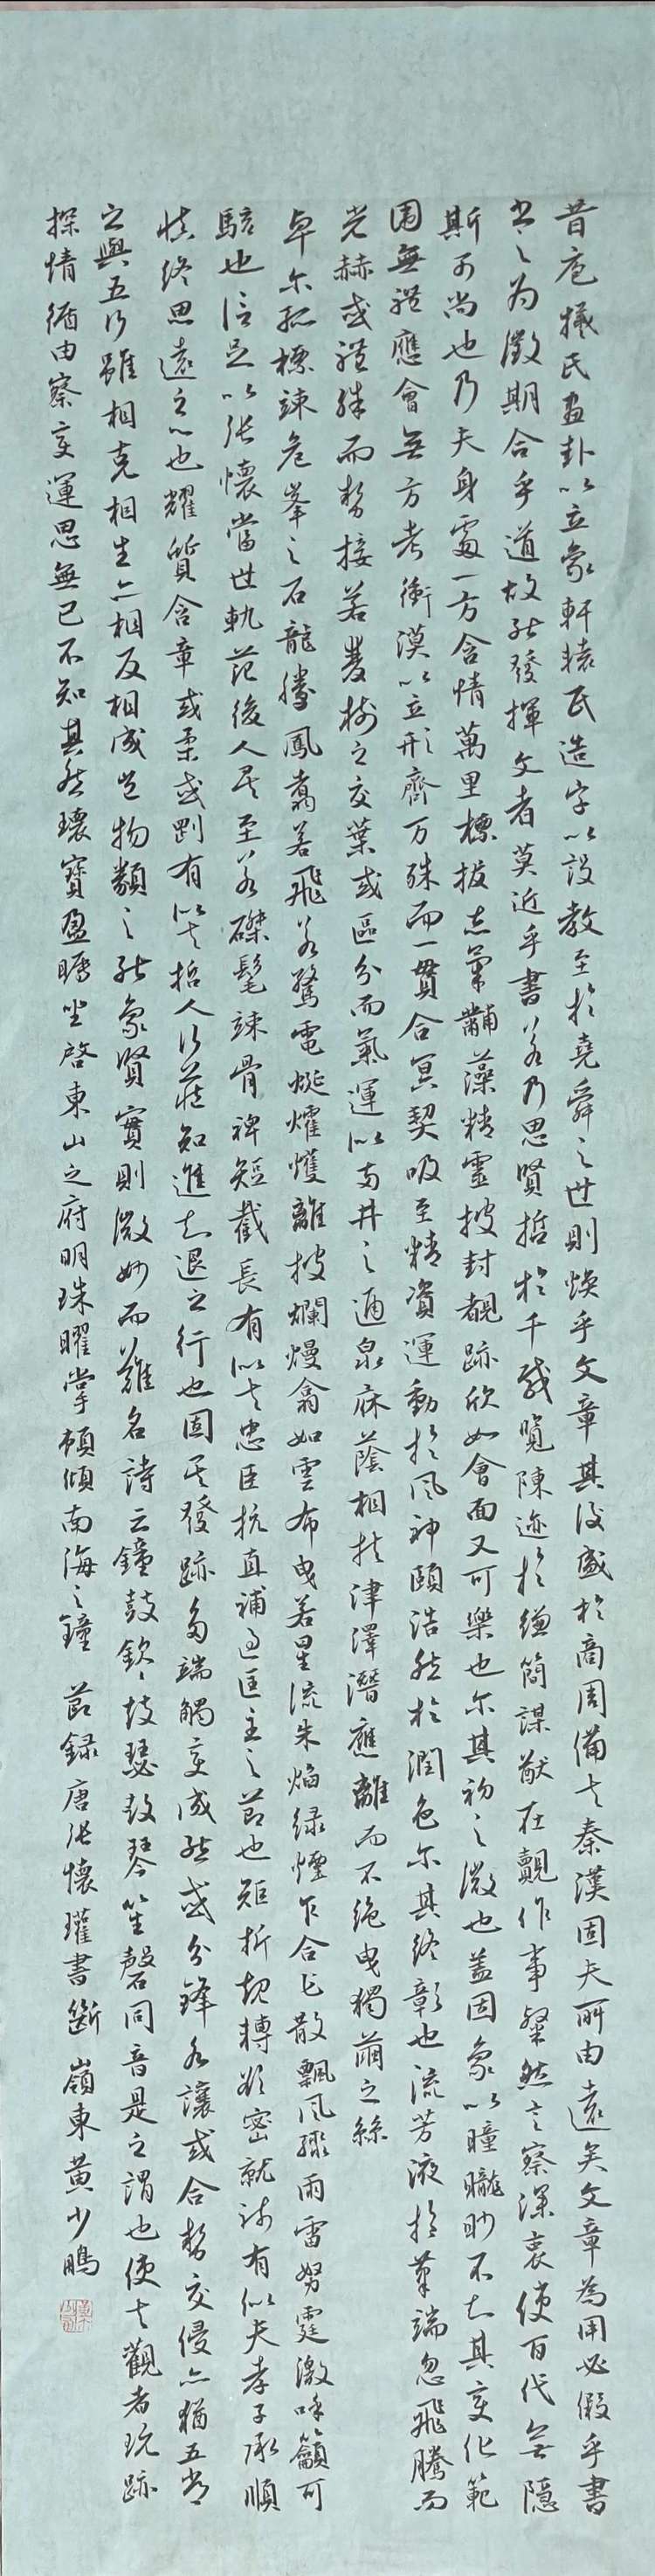 昔庖犧氏畫卦以立象軒轅氏造字以設教至於堯舜之世則煥乎文章其後盛於商周備夫秦漢固夫所由遠矣文章為用必假乎書
書之為徵期合乎道故能發揮文者莫近乎書若乃思賢哲於千載覽陳迹於縑簡謀猷在覿作事粲然言察深衷使百代無隱
斯可尚也乃夫身處一方含情萬里標拔志氣黼藻精靈披封覩跡欣如會面又可樂也尔其初之微也蓋因象以瞳矓眇不知其變化範
圍無體應會無方考衝漠以立形齊万殊而一貫合冥契吸至精資運動於風神頤浩然於潤色尔其終彰也流芳液於筆端忽飛騰而
光赫或體殊而勢接若雙樹之交葉或區分而氣運似兩井之通泉庥蔭相扶津澤潛應離而不絕曳獨繭之絲
卓尔孤標竦危峯之石龍騰鳳翥若飛若驚電烻爠㸌離披爛熳翕如雲布曳若星流朱焰绿煙乍合乍散飄風驟雨雷努霆激呼籲可
駭也信足以張懷當世軌範後人矣至若磔髦竦骨裨短截長有似夫忠臣抗直補過匡主之節也矩折規轉欲密就踈有似夫孝子承順
慎終思遠之心也耀質含章或柔或剛有似夫哲人行藏知進知退之行也固其發跡多端觸變成態或分鋒各讓或合勢交侵亦猶五常
之與五行雖相克相生亦相反相成豈物類之能象賢實則微妙而難名詩云鐘鼓欽〻鼓瑟鼓琴笙磬同音是之謂也使夫觀者玩跡
探情循由察變運思無已不知其然瓌寶盈矚坐啓東山之府明珠曜掌頓傾南海之鐘 節録唐張懷瓘書斷 嶺東黃少鵬